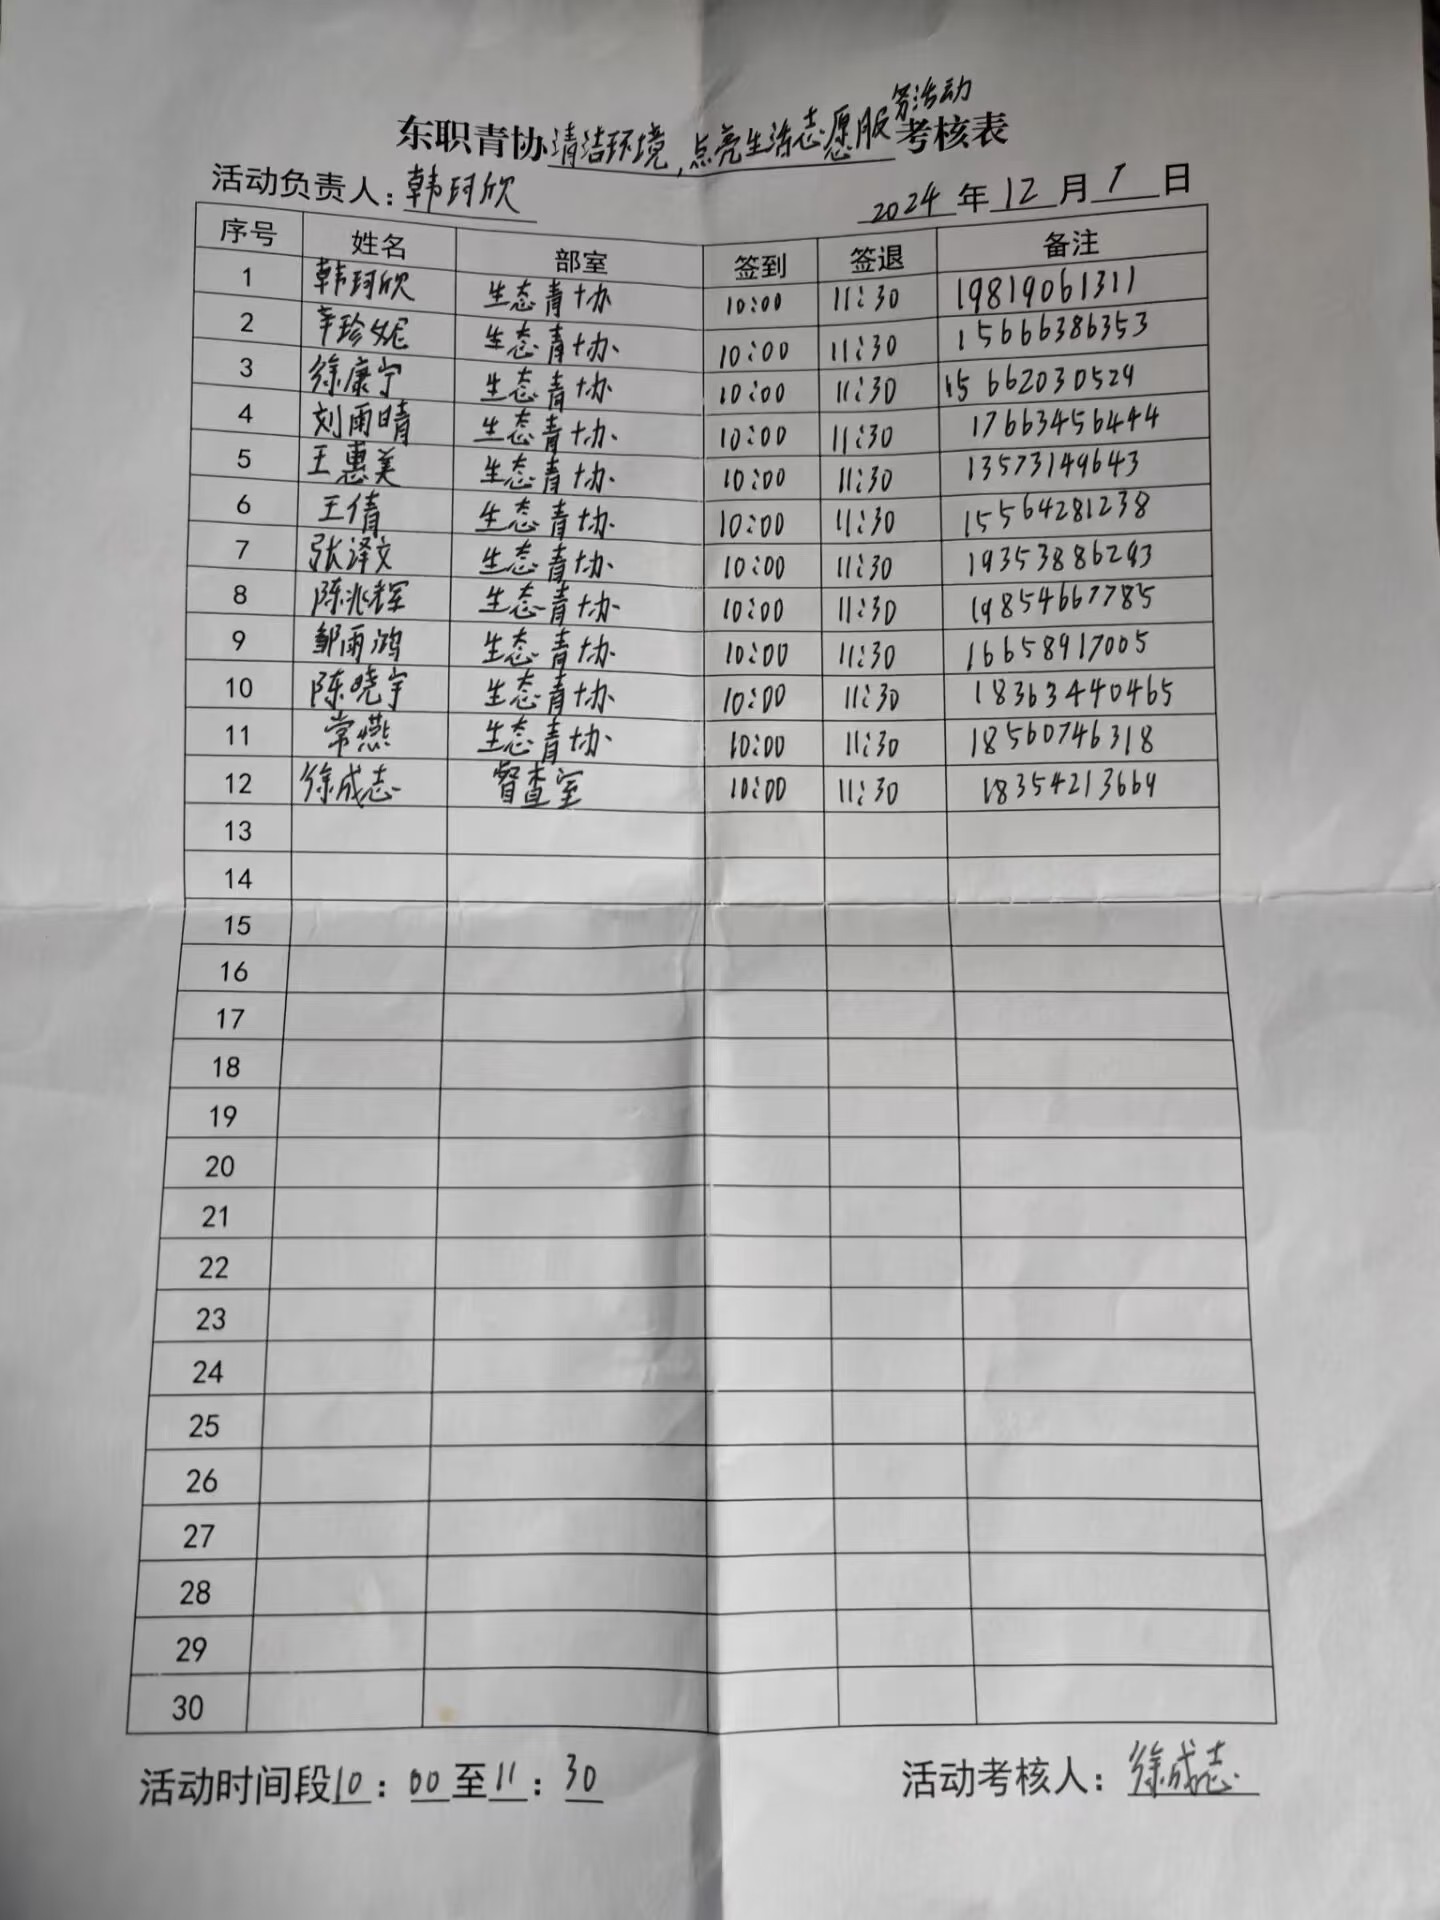 东职青协清洁环境,点亮生活志愿服务活动考核表
活动负责人:韩珂欣 2024年12月1日
序号 姓名 部室 签到 签退 备注
1 韩珂欣 生态青协 10:00 11:30 19819061311
2 辛珍妮 生态青协 10:00 11:30 15666386353
3 徐康宁 生态青协 10:00 11:30 15662030529
4 刘雨晴 生态青协 10:00 11:30 17663456444
5 王惠美 生态青协 10:00 11:30 13573149643
6 王倩 生态青协 10:00 11:30 15564281238
7 张泽文 生态青协 10:00 11:30 19353886293
8 陈兆辉 生态青协 10:00 11:30 19854667785
9 邹雨鸿 生态青协 10:00 11:30 16658917005
10 陈晓宇 生态青协 10:00 11:30 18363440465
11 常燕 生态青协 10:00 11:30 18560746318
12 徐成志 督查室 10:00 11:30 18354213669
13
14
15
16
17
18
19
20
21
22
23
24
25
26
27
28
29
30
活动时间段10:00至11:30 活动考核人:徐成志